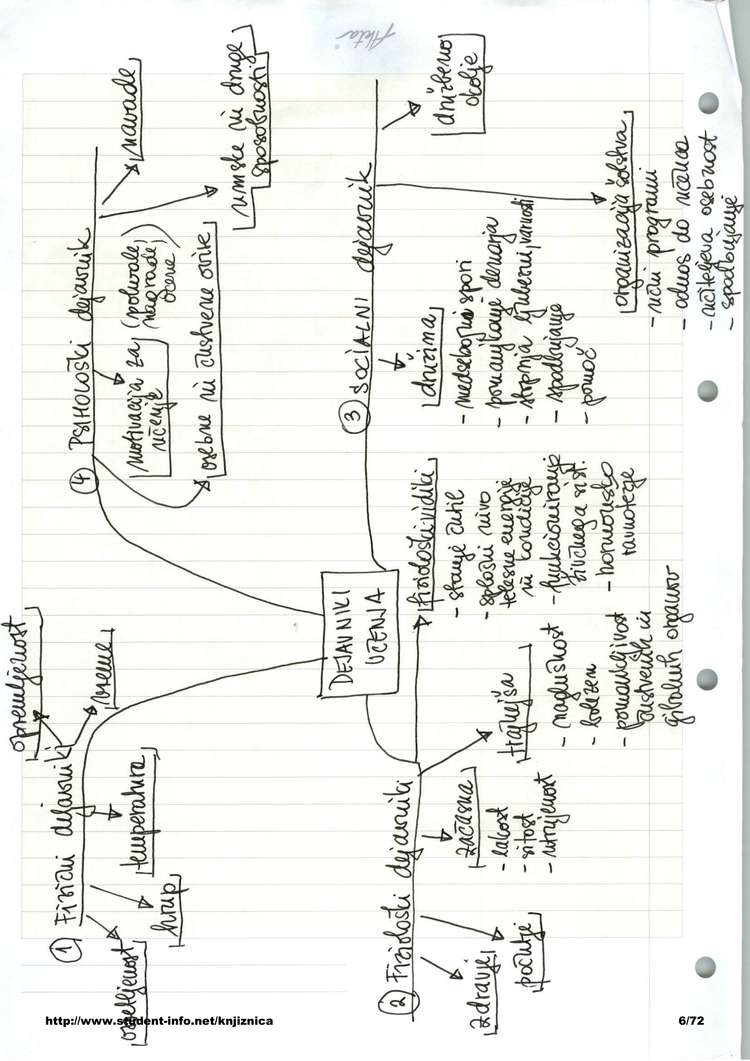 DEJAVNIKI
UČENJA
① Fizični dejavniki
osvetljenost
hrup
temperatura
vreme
opremljenost
② Fiziološki dejavniki
zdravje
počutje
začasna
- lakost
- sitost
- utrujenost
trajnejša
- naglušnost
- bolezen
- pomanjkljivost
čustvenih in
gibalnih organov
fiziološki vidiki
- stanje čutil
- splošni nivo
telesne energije
in kondicije
- funkcioniranje
živčnega sist.
- hormonsko
ravnotežje
③ SOCIALNI dejavnik
družina
- medsebojni spori
- pomanjkanje denarja
- stopnja ljubezni, varnosti
- spodbujanje
- pomoč
organizacija šolstva
- učni programi
- odnos do učenca
- učiteljeva osebnost
- spodbujanje
družbeno
okolje
④ PSIHOLOŠKI dejavnik
motivacija za
učenje
(pohvale,
nagrade,
ocene)
osebne in čustvene ovire
umske in druge
sposobnosti
navade
http://www.student-info.net/knjiznica
6/72